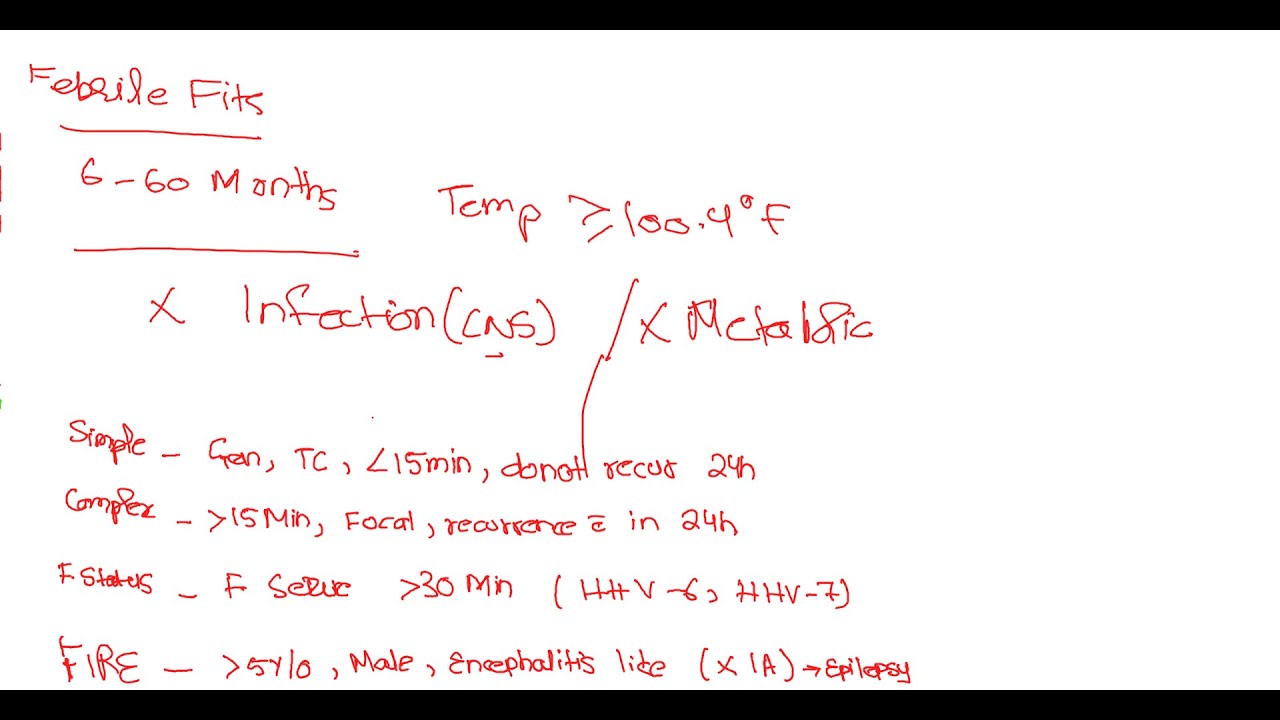 Febrile Fits
6-60 Months Temp ≥100.4°F
X Infection (CNS) / X Metabolic
Simple - Gen, TC, <15min, donot recur 24h
Complex - >15Min, Focal, recurrence c̄ in 24h
F Status - F >30 Min (HHV-6, HHV-7)
FIRE - >5Y/O, Male, Encephalitis like (X IA) → Epilepsy